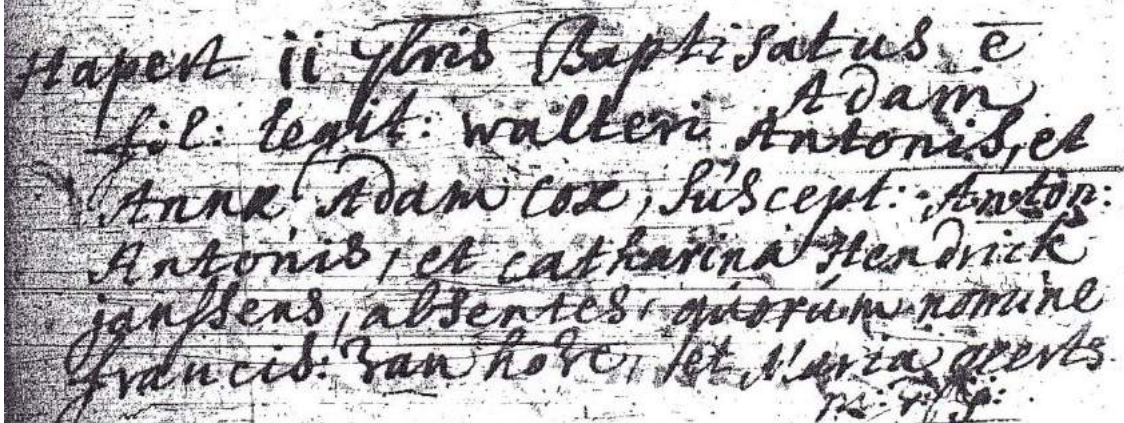 Hapert ii 7bris Baptisatus ē
Adam
fil: legit: walteri Antonis, et
Annæ Adam Cox, Suscept: Anton:
Antonis, et catharina Hendrick
janssens, absentes, quorum nomine
francis: van hove, et Maria geerts